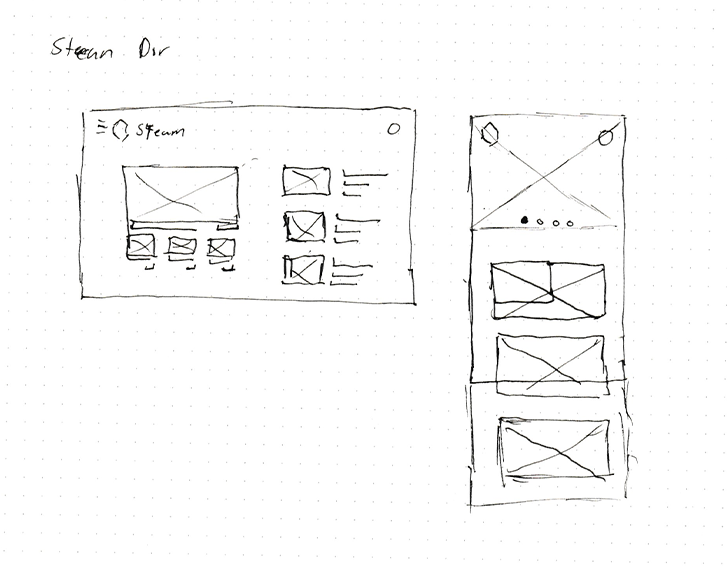 Steam Dir
Steam